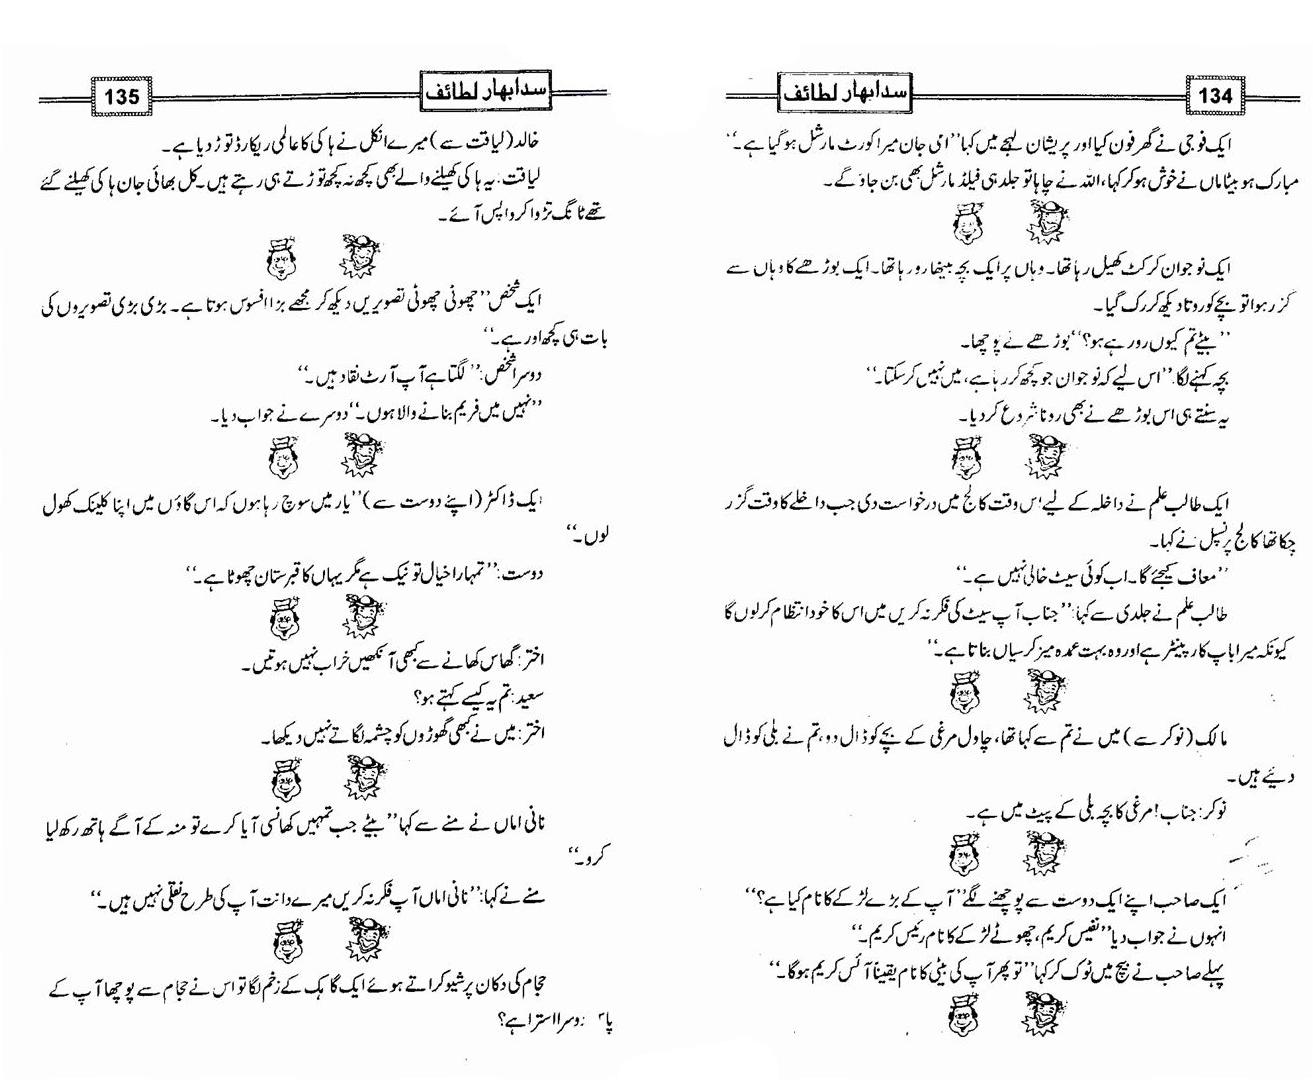 134
سدابہار لطائف
ایک فوجی نے گھر فون کیا اور پریشان لہجے میں کہا ’’امی جان میرا کورٹ مارشل ہو گیا ہے۔‘‘
مبارک ہو بیٹا ماں نے خوش ہو کر کہا، اللہ نے چاہا تو جلد ہی فیلڈ مارشل بھی بن جاؤ گے۔
ایک نوجوان کرکٹ کھیل رہا تھا۔ وہاں پر ایک بچہ بیٹھا رو رہا تھا۔ ایک بوڑھے کا وہاں سے
گزر ہوا تو بچے کو روتا دیکھ کر رک گیا۔
’’بیٹے تم کیوں رو رہے ہو؟‘‘ بوڑھے نے پوچھا۔
بچہ کہنے لگا: ’’اس لیے کہ نوجوان جو کچھ کر رہا ہے، میں نہیں کر سکتا۔‘‘
یہ سنتے ہی اس بوڑھے نے بھی رونا شروع کر دیا۔
ایک طالب علم نے داخلہ کے لیے اس وقت کالج میں درخواست دی جب داخلے کا وقت گزر
چکا تھا کالج پرنسپل نے کہا۔
’’معاف کیجئے گا۔ اب کوئی سیٹ خالی نہیں ہے۔‘‘
طالب علم نے جلدی سے کہا: ’’جناب آپ سیٹ کی فکر نہ کریں میں اس کا خود انتظام کر لوں گا
کیونکہ میرا باپ کارپینٹر ہے اور وہ بہت عمدہ میز کرسیاں بناتا ہے۔‘‘
مالک (نوکر سے) میں نے تم سے کہا تھا، چاول مرغی کے بچے کو ڈال دو، تم نے بلی کو ڈال
دیئے ہیں۔
نوکر: جناب! مرغی کا بچہ بلی کے پیٹ میں ہے۔
ایک صاحب اپنے ایک دوست سے پوچھنے لگے ’’آپ کے بڑے لڑکے کا نام کیا ہے؟‘‘
انہوں نے جواب دیا ’’نفیس کریم، چھوٹے لڑکے کا نام رئیس کریم۔‘‘
پہلے صاحب نے بیچ میں ٹوک کر کہا ’’تو پھر آپ کی بیٹی کا نام یقیناً آئس کریم ہوگا۔‘‘
سدابہار لطائف
135
خالد (لیاقت سے) میرے انکل نے ہاکی کا عالمی ریکارڈ توڑ دیا ہے۔
لیاقت: یہ ہاکی کھیلنے والے بھی کچھ نہ کچھ توڑتے ہی رہتے ہیں۔ کل بھائی جان ہاکی کھیلنے گئے
تھے ٹانگ تڑوا کر واپس آئے۔
ایک شخص ’’چھوٹی چھوٹی تصویریں دیکھ کر مجھے بڑا افسوس ہوتا ہے۔ بڑی بڑی تصویروں کی
بات ہی کچھ اور ہے۔‘‘
دوسرا شخص: ’’لگتا ہے آپ آرٹ نقاد ہیں۔‘‘
’’نہیں میں فریم بنانے والا ہوں۔‘‘ دوسرے نے جواب دیا۔
ایک ڈاکٹر (اپنے دوست سے) ’’یار میں سوچ رہا ہوں کہ اس گاؤں میں اپنا کلینک کھول
لوں۔‘‘
دوست: ’’تمہارا خیال تو نیک ہے مگر یہاں کا قبرستان چھوٹا ہے۔‘‘
اختر: گھاس کھانے سے کبھی آنکھیں خراب نہیں ہوتیں۔
سعید: تم یہ کیسے کہتے ہو؟
اختر: میں نے کبھی گھوڑوں کو چشمہ لگاتے نہیں دیکھا۔
نانی اماں نے منے سے کہا ’’بیٹے جب تمہیں کھانسی آیا کرے تو منہ کے آگے ہاتھ رکھ لیا
کرو۔‘‘
منے نے کہا: ’’نانی اماں آپ فکر نہ کریں میرے دانت آپ کی طرح نقلی نہیں ہیں۔‘‘
حجام کی دکان پر شیو کراتے ہوئے ایک گاہک کے زخم لگا تو اس نے حجام سے پوچھا آپ کے
دوسرا استرا ہے؟